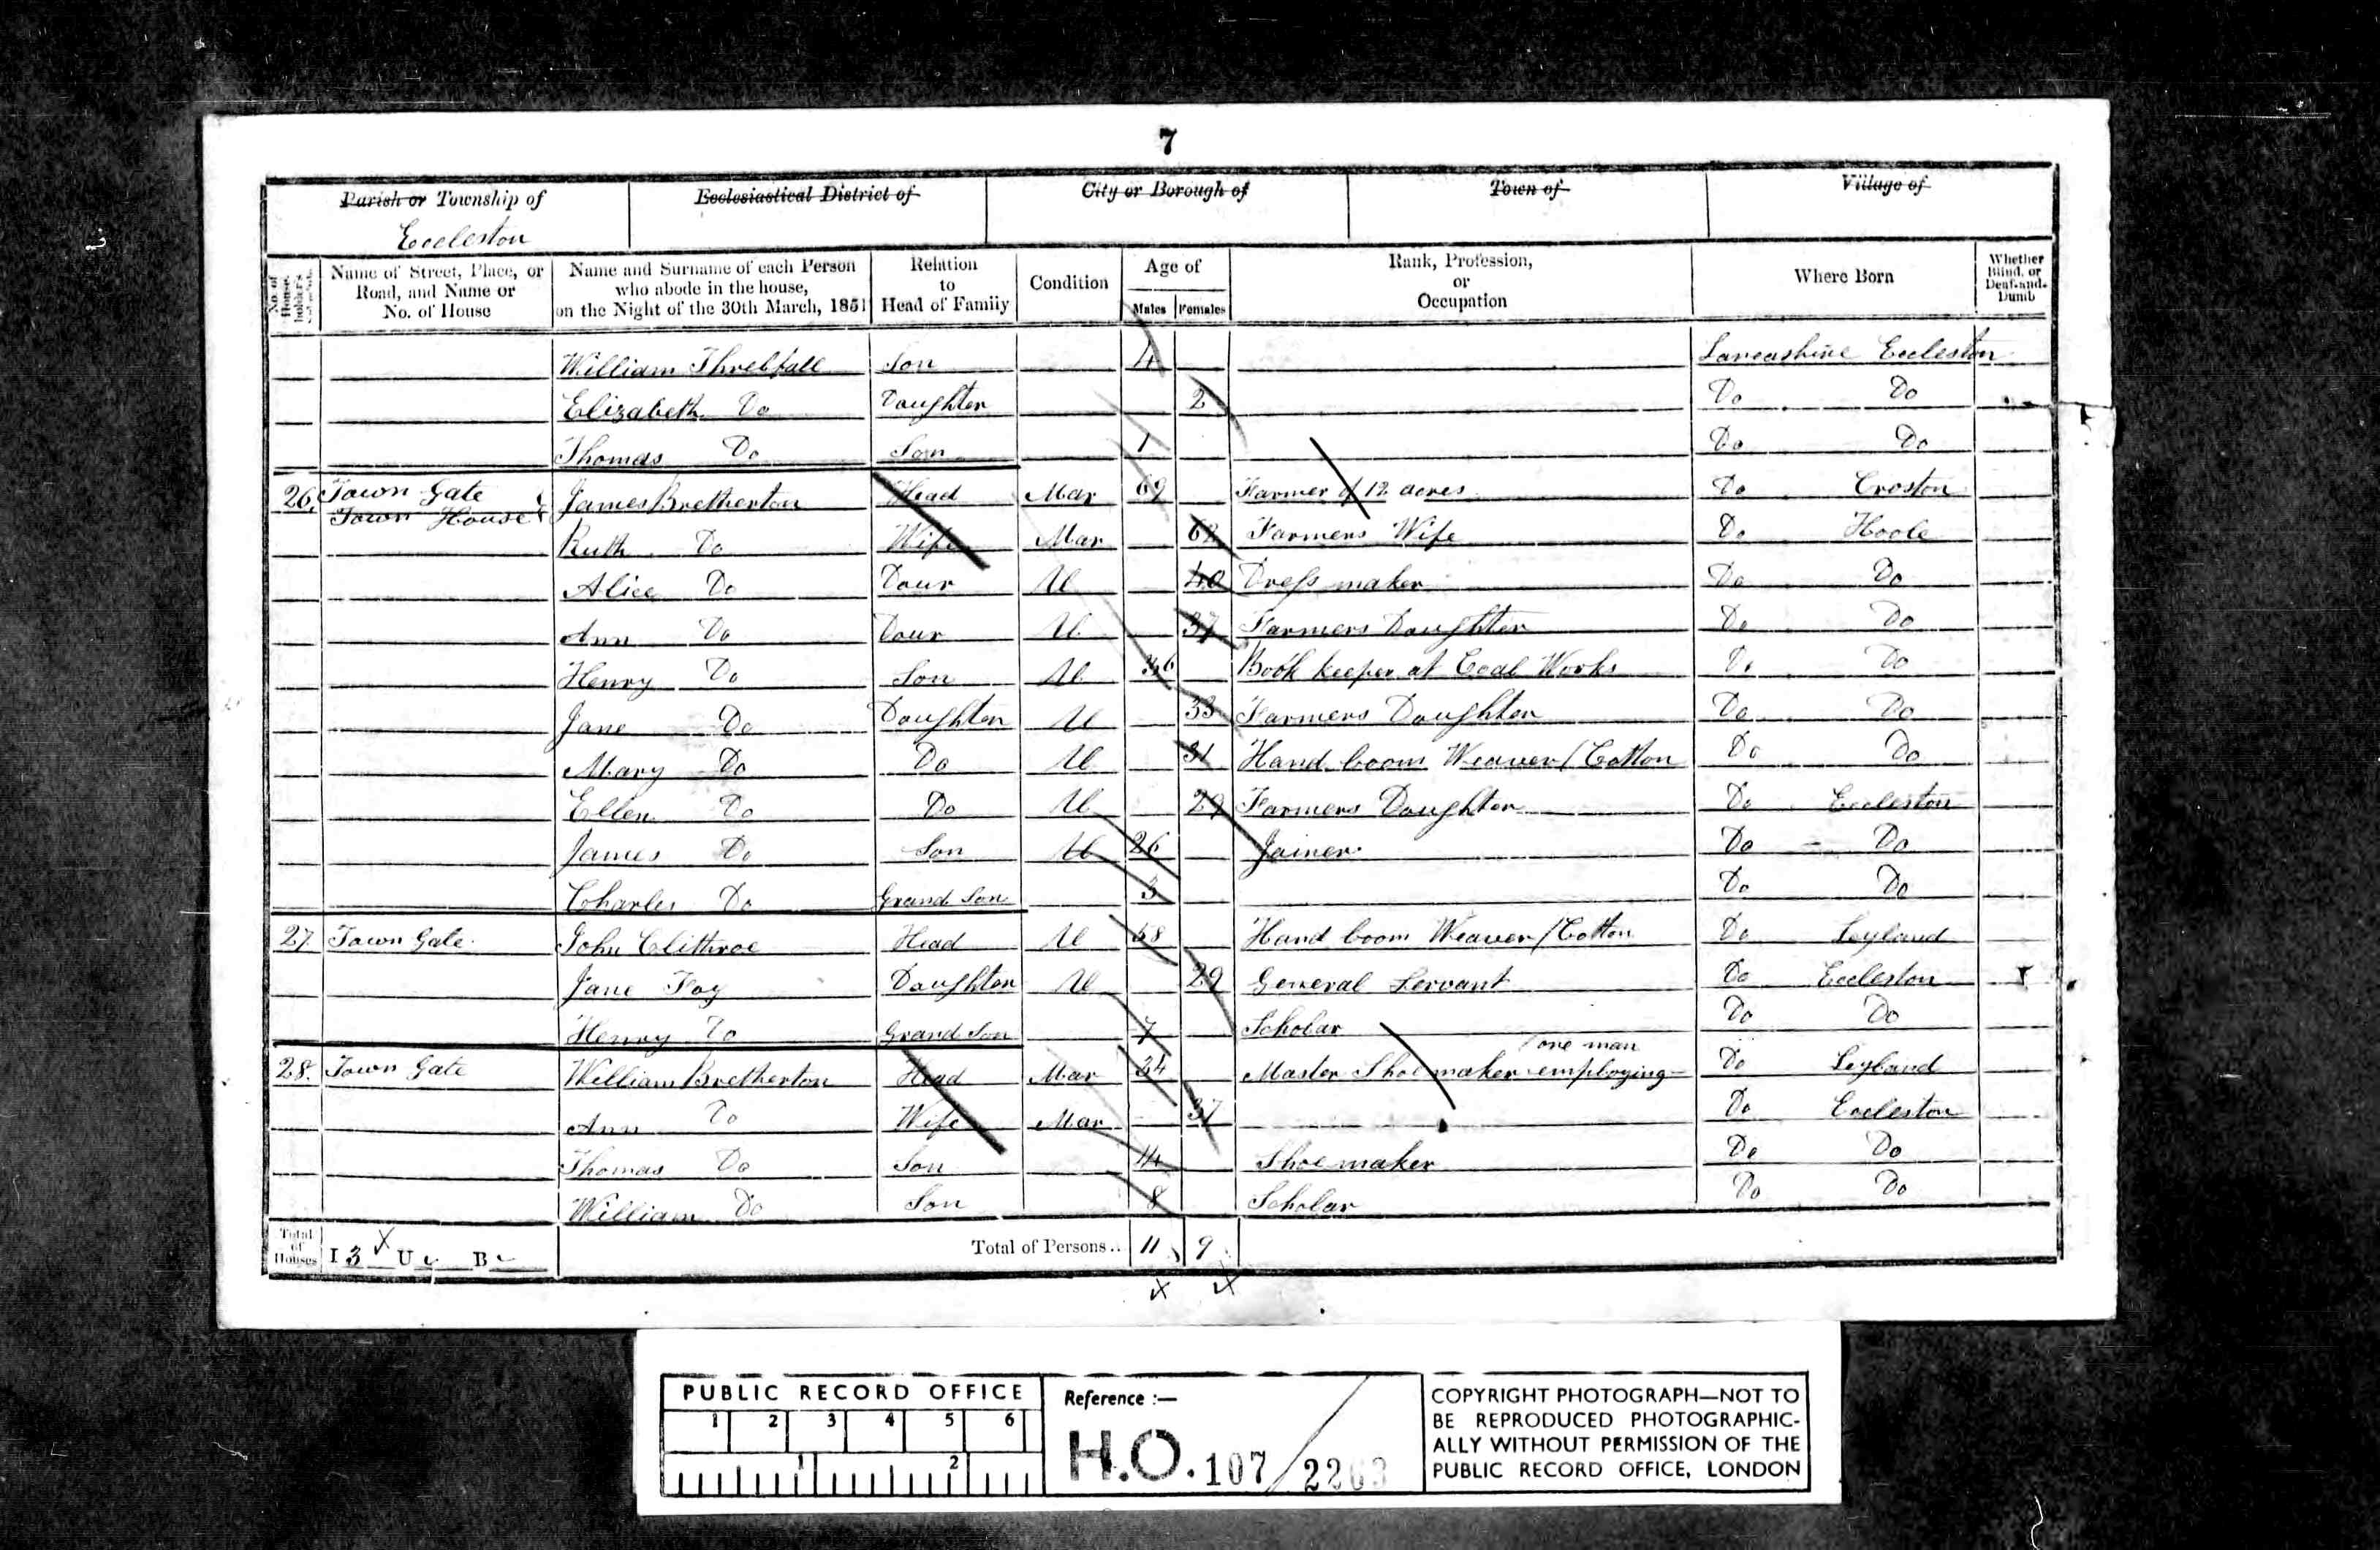 7
Parish or Township of
Eccleston
Ecclesiastical District of
City or Borough of
Town of
Village of
No. of House-holder's
Name of Street, Place, or Road, and Name or No. of House
Name and Surname of each Person who abode in the house, on the Night of the 30th March, 1851
Relation to Head of Family
Condition
Age of
Males Females
Rank, Profession, or Occupation
Where Born
Whether Blind, or Deaf-and-Dumb
William Threlfall Son 4 Lancashire Eccleston
Elizabeth Do Daughter 2 Do Do
Thomas Do Son 1 Do Do
26 Town Gate James Bretherton Head Mar 69 Farmer of 12 acres Do Croston
Town House
Ruth Do Wife Mar 62 Farmers Wife Do Hoole
Alice Do Daur U 40 Dress maker Do Do
Ann Do Daur U 37 Farmers Daughter Do Do
Henry Do Son U 36 Book keeper at Coal Works Do Do
Jane Do Daughter U 33 Farmers Daughter Do Do
Mary Do Do U 31 Hand loom Weaver / Cotton Do Do
Ellen Do Do U 29 Farmers Daughter Do Eccleston
James Do Son U 26 Joiner Do Do
Charles Do Grand Son 3 Do Do
27 Town Gate John Clithroe Head U 58 Hand loom Weaver / Cotton Do Leyland
Jane Foy Daughter U 29 General Servant Do Eccleston
Henry Do Grand Son 7 Scholar Do Do
28. Town Gate William Bretherton Head Mar 34 Master Shoe maker employing one man Do Leyland
Ann Do Wife Mar 37 Do Eccleston
Thomas Do Son 14 Shoe maker Do Do
William Do Son 8 Scholar Do Do
Total of Houses I 3 U B Total of Persons.. 11 9
PUBLIC RECORD OFFICE
1 2 3 4 5 6
1 2
Reference :—
H.O. 107/2263
COPYRIGHT PHOTOGRAPH—NOT TO
BE REPRODUCED PHOTOGRAPHIC-
ALLY WITHOUT PERMISSION OF THE
PUBLIC RECORD OFFICE, LONDON